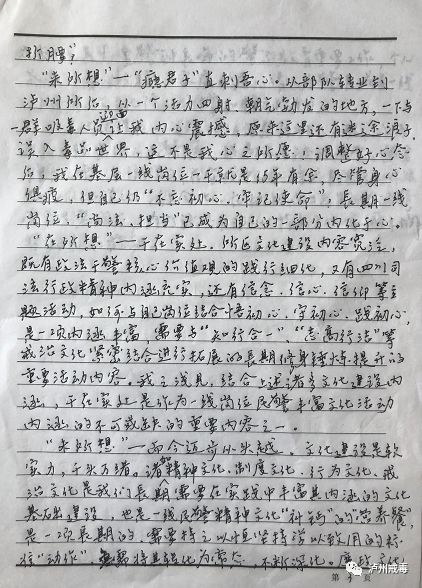 折腰？
"来所想"一"瘾君子"直刺吾心。从部队转业到
泸州所后，从一个活力四射、朝气勃发的地方，一下与
一群吸毒人员过面让我内心震撼，原来这里还有迷途浪子
误入毒品世界，这不是我心之所愿，调整好心态
后，我在基层一线岗位一干就是15年有余，尽管身心
俱疲，但自己仍"不忘初心、牢记使命"，长期一线
岗位，"尚法、担当"已成为自己的一部分内化于心。
"在所想"一干在实处，所区文化建设内容宽泛，
既有政法干警核心价值观的践行细化，又有四川司
法行政精神内涵充实，还有信念、信心、信仰等主
题活动，如何与自己岗位结合悟初心、守初心、践初心，
是一项内涵丰富，需要与"知行合一"、"志高行洁"等
戒治文化紧密结合进行拓展的长期修身锤炼提升的
重要活动内容。我之浅见，结合上述诸多文化建设内
涵，干在实处是作为一线岗位民警丰富文化活动
内涵的不可或缺的重要内容之一。
"未所想"一而今迈步从头越。文化建设是软
实力，千头万绪。诸如精神文化、制度文化、行为文化、戒
治文化是我们长期需要在实践中丰富其内涵的文化
基础建设，也是一线民警精神文化"补钙"的"营养餐"，
是一项长期的、需要持之以恒、坚持学以致用的标
准"动作"，需将其转化为常态，不断深化。廉政文化
第 页
泸州戒毒